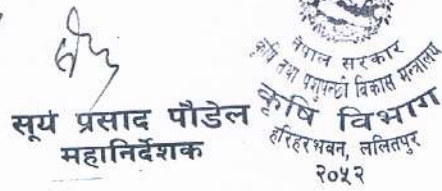 सूर्य प्रसाद पौडेल
महानिर्देशक
नेपाल सरकार
कृषि तथा पशुपन्छी विकास मन्त्रालय
कृषि विभाग
हरिहरभवन, ललितपुर
२०५२